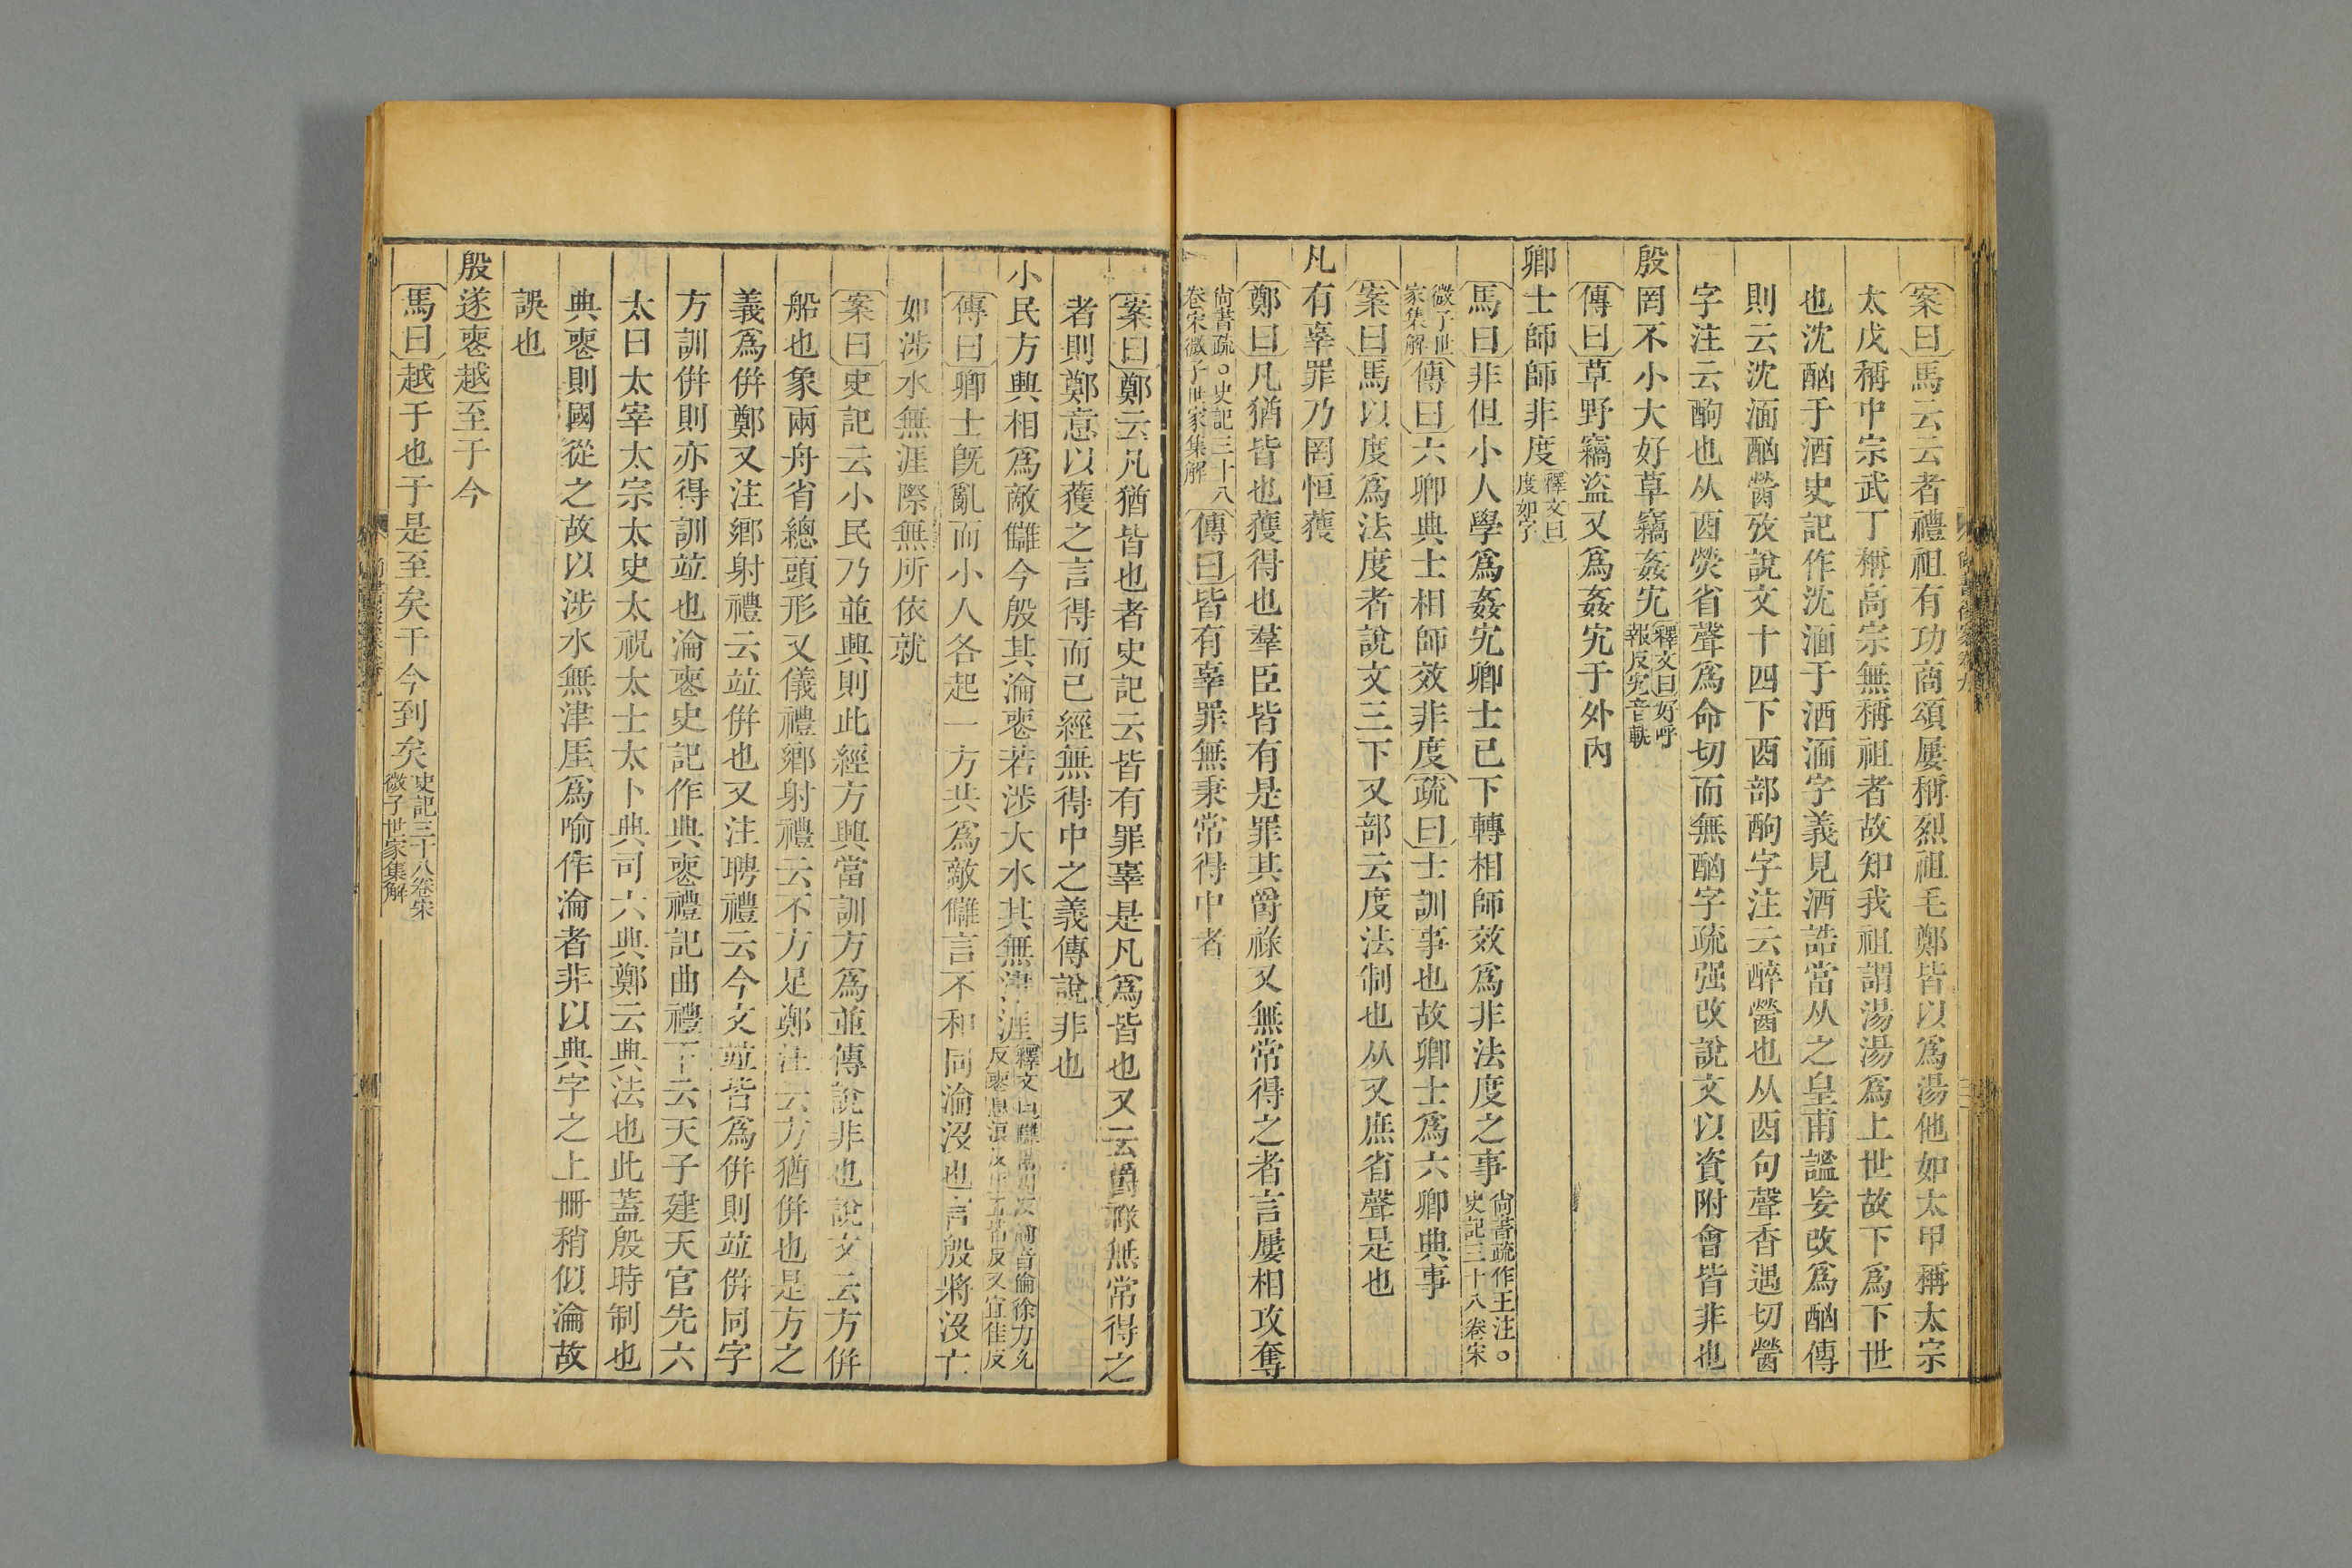 案曰馬云云者禮祖有功商頌屢稱烈祖毛鄭皆以爲湯他如太甲稱太宗
太戊稱中宗武丁稱高宗無稱祖者故知我祖謂湯湯爲上世故下爲下世
也沈酗于酒史記作沈湎于酒湎字義見酒誥當从之皇甫謐妄改爲酗傳
則云沈湎酗醟攷說文十四下酉部酌字注云醉醟也从酉句聲香遇切醟
字注云酌也从酉熒省聲爲命切而無酗字疏强改說文以資附會皆非也
殷罔不小大好草竊姦宄釋文曰好呼報反宄音軌
傳曰草野竊盜又爲姦宄于外內
卿士師師非度釋文曰度如字
馬曰非但小人學爲姦宄卿士已下轉相師效爲非法度之事尙書疏作王注○史記三十八卷宋
微子世家集解傳曰六卿典士相師效非度疏曰士訓事也故卿士爲六卿典事
案曰馬以度爲法度者說文三下又部云度法制也从又庶省聲是也
凡有辜罪乃罔恒獲
鄭曰凡猶皆也獲得也羣臣皆有是罪其爵祿又無常得之者言屢相攻奪
尙書疏○史記三十八卷宋微子世家集解傳曰皆有辜罪無秉常得中者
案曰鄭云凡猶皆也者史記云皆有罪辜是凡爲皆也又云爵祿無常得之
者則鄭意以獲之言得而已經無得中之義傳說非也
小民方興相爲敵讎今殷其淪喪若涉大水其無津涯
傳曰卿士旣亂而小人各起一方共爲敵讎言不和同淪沒也言殷將沒亡
如涉水無涯際無所依就
案曰史記云小民乃並興則此經方興當訓方爲並傳說非也說文云方併
船也象兩舟省總頭形又儀禮鄉射禮云不方足鄭注云方猶併也是方之
義爲併鄭又注鄉射禮云竝併也又注聘禮云今文竝皆爲併則竝併同字
方訓併則亦得訓竝也淪喪史記作典喪禮記曲禮下云天子建天官先六
太曰太宰太宗太史太祝太士太卜典司六典鄭云典法也此蓋殷時制也
典喪則國從之故以涉水無津厓爲喻作淪者非以典字之上冊稍似淪故
誤也
殷遂喪越至于今
馬曰越于也于是至矣于今到矣史記三十八卷宋微子世家集解